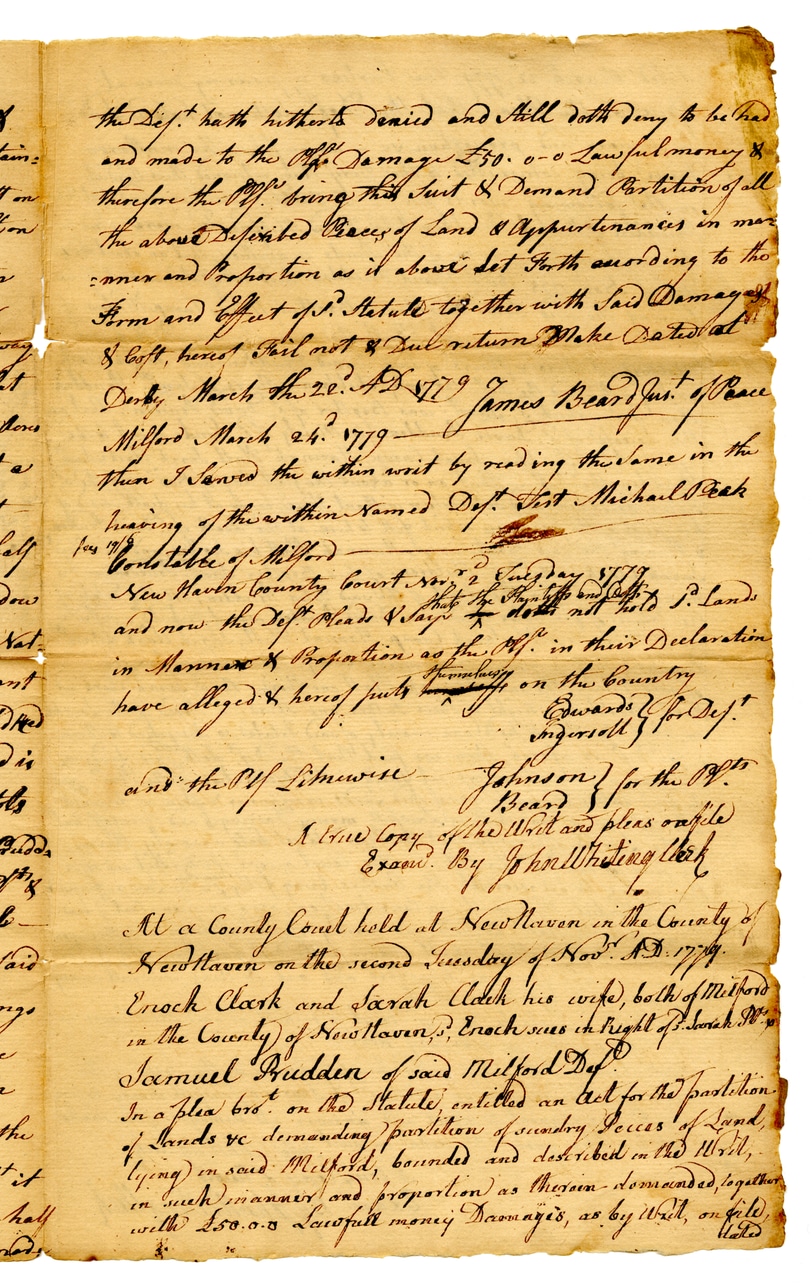 &
tain=
tt on
t on
n
way
at
Acres
t a
half
dow
Nat-
ant
d is
Prudd
&
Said
ngs
the
t it
half
the Def.t hath hitherto denied and Still doth deny to be had
and made to the Plfs Damage £50. 0-0 Lawful money &
therefore the Plf.s bring this Suit & Demand Partition of all
the above Discribed Peaces of Land & Appurtenances in ma=
=nner and Proportion as is above Set Forth according to the
Form and Effect of S.d Statute together with Said Damages
& Cost, hereof Fail not & Due return Make Dated at
Derby March the 22.d AD 1779 James Beard Jus.t of Peace
Milford March 24.d 1779 —
then I Served the within writ by reading the Same in the
heaving of the within Named Def.t Test Michael Peck
fees 19/6 Constable of Milford —
New Haven County Court Nov.r 2.d Tuesday 1779
and now the Def.t Pleads & Says that the Plaintiffs and Deft do not hold S.d Lands
in Manner & Proportion as the Plf.s in their Declaration
have alleged & hereof puts themselves on the Country
Edwards
Ingersoll } for Def.t
and the Plf Likewise — Johnson
Beard } for the Plfts
A true Copy of the Writ and pleas on file
Exam.d By John Whiting Clerk
At a County Court held at New Haven in the County of
New Haven on the second Tuesday of Nov.r AD. 1779.
Enoch Clark and Sarah Clark his wife, both of Milford
in the County of New Haven, s.d Enoch sues in Right of s.d Sarah Plts. v
Samuel Prudden of said Milford Def.t
In a plea bro.t on the Statute, entitled an Act for the partition
of Lands &c demanding partition of sundry Peices of Land,
lying in said Milford, bounded and described in the Writ,
in such manner and proportion as therein demanded, together
with £50.0.0 Lawfull money Damages, as by Writ, on file,
dated